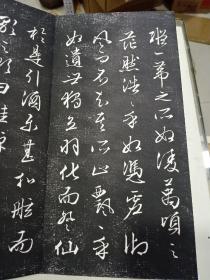 縱一葦之所如凌萬頃之
茫然浩浩乎如憑虛御
風而不知其所止飄飄乎
如遺世獨立羽化而登仙
於是飲酒樂甚扣舷而
歌之歌曰桂棹